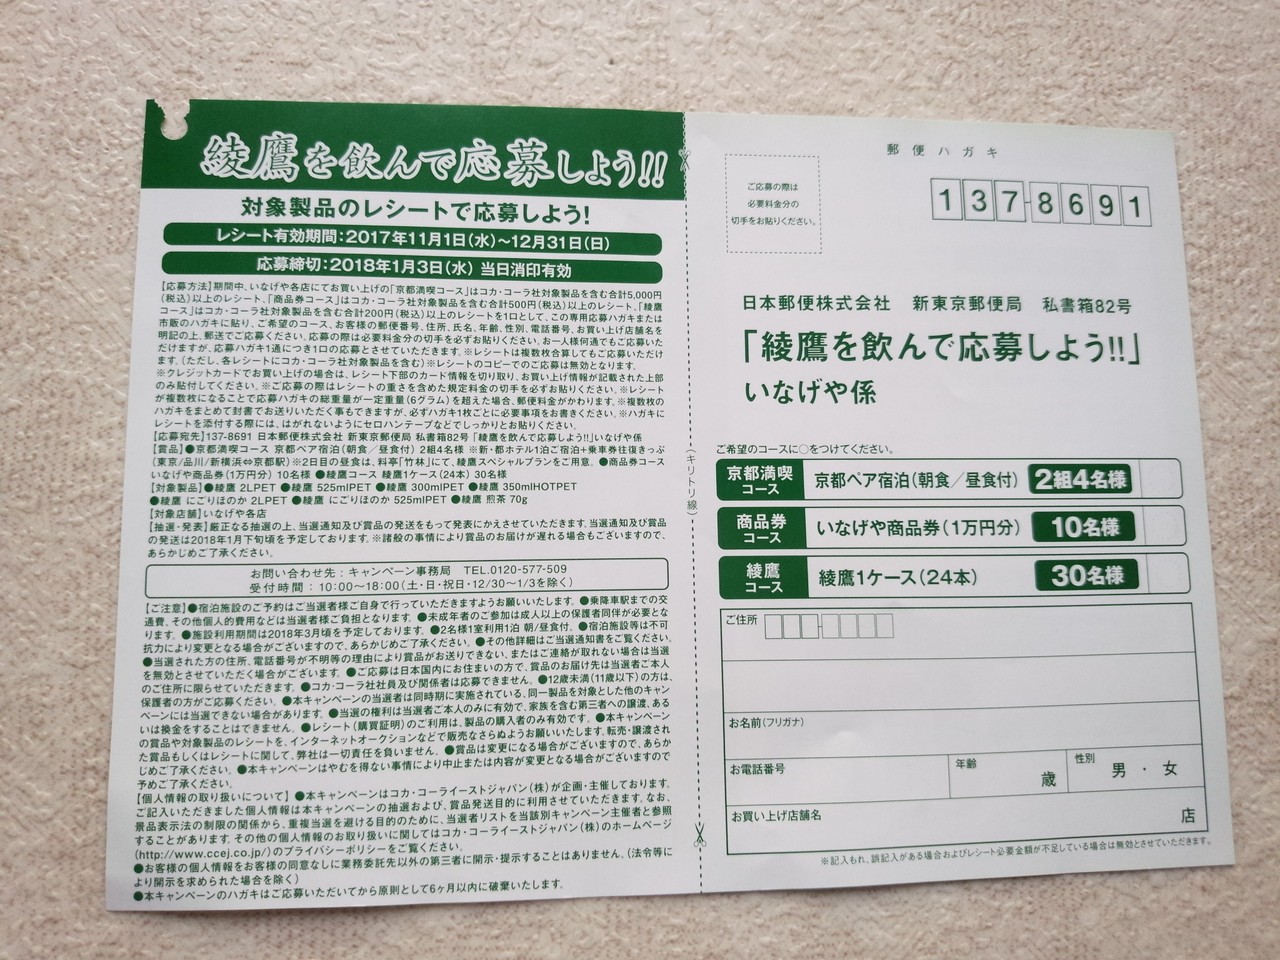 綾鷹を飲んで応募しよう!!
対象製品のレシートで応募しよう!
レシート有効期間:2017年11月1日(水)~12月31日(日)
応募締切:2018年1月3日(水) 当日消印有効
【応募方法】期間中、いなげや各店にてお買い上げの「京都満喫コース」はコカ・コーラ社対象製品を含む合計5,000円
(税込)以上のレシート、「商品券コース」はコカ・コーラ社対象製品を含む合計500円(税込)以上のレシート、「綾鷹
コース」はコカ・コーラ社対象製品を含む合計200円(税込)以上のレシートを1口として、この専用応募ハガキまたは
市販のハガキに貼り、ご希望のコース、お客様の郵便番号、住所、氏名、年齢、性別、電話番号、お買い上げ店舗名を
明記の上、郵送でご応募ください。応募の際は必要料金分の切手を必ずお貼りください。お一人様何通でもご応募いた
だけますが、応募ハガキ1通につき1口の応募とさせていただきます。※レシートは複数枚合算してもご応募いただけ
ます。(ただし、各レシートにコカ・コーラ社対象製品を含む)※レシートのコピーでのご応募は無効となります。
※クレジットカードでお買い上げの場合は、レシート下部のカード情報を切り取り、お買い上げ情報が記載された上部
のみ貼付してください。※ご応募の際はレシートの重さを含めた規定料金の切手を必ずお貼りください。※レシート
が複数枚になることで応募ハガキの総重量が一定重量(6グラム)を超えた場合、郵便料金がかわります。※複数枚の
ハガキをまとめて封書でお送りいただく事もできますが、必ずハガキ1枚ごとに必要事項をお書きください。※ハガキに
レシートを添付する際には、はがれないようにセロハンテープなどでしっかりとお貼りください。
【応募宛先】137-8691 日本郵便株式会社 新東京郵便局 私書箱82号 「綾鷹を飲んで応募しよう!!」いなげや係
【賞品】●京都満喫コース 京都ペア宿泊(朝食/昼食付) 2組4名様 ※新・都ホテル1泊ご宿泊+乗車券往復きっぷ
(東京/品川/新横浜⇔京都駅)※2日目の昼食は、料亭「竹林」にて、綾鷹スペシャルプランをご用意。●商品券コース
いなげや商品券(1万円分) 10名様 ●綾鷹コース 綾鷹1ケース(24本) 30名様
【対象製品】●綾鷹 2LPET ●綾鷹 525mlPET ●綾鷹 300mlPET ●綾鷹 350mlHOTPET
●綾鷹 にごりほのか 2LPET ●綾鷹 にごりほのか 525mlPET ●綾鷹 煎茶 70g
【対象店舗】いなげや各店
【抽選・発表】厳正なる抽選の上、当選通知及び賞品の発送をもって発表にかえさせていただきます。当選通知及び賞品
の発送は2018年1月下旬頃を予定しております。※諸般の事情により賞品のお届けが遅れる場合もございますので、
あらかじめご了承ください。
お問い合わせ先:キャンペーン事務局 TEL.0120-577-509
受付時間:10:00~18:00(土・日・祝日・12/30~1/3を除く)
【ご注意】●宿泊施設のご予約はご当選者様ご自身で行っていただきますようお願いいたします。●乗降車駅までの交
通費、その他個人的費用などは当選者様ご負担となります。●未成年者のご参加は成人以上の保護者同伴が必要とな
ります。●施設利用期間は2018年3月頃を予定しております。●2名様1室利用1泊 朝/昼食付。●宿泊施設等は不可
抗力により変更となる場合がございますので、あらかじめご了承ください。●その他詳細はご当選通知書をご覧ください。
●当選された方の住所、電話番号が不明等の理由により賞品がお送りできない、またはご連絡が取れない場合は当選
を無効とさせていただく場合がございます。●ご応募は日本国内にお住まいの方で、賞品のお届け先は当選者ご本人
のご住所に限らせていただきます。●コカ・コーラ社社員及び関係者は応募できません。●12歳未満(11歳以下)の方は、
保護者の方がご応募ください。●本キャンペーンの当選者は同時期に実施されている、同一製品を対象とした他のキャン
ペーンには当選できない場合があります。●当選の権利は当選者ご本人のみに有効で、家族を含む第三者への譲渡、ある
いは換金をすることはできません。●レシート(購買証明)のご利用は、製品の購入者のみ有効です。●本キャンペーン
の賞品や対象製品のレシートを、インターネットオークションなどで販売なさらぬようお願いいたします。転売・譲渡され
た賞品もしくはレシートに関して、弊社は一切責任を負いません。●賞品は変更になる場合がございますので、あらか
じめご了承ください。●本キャンペーンはやむを得ない事情により中止または内容が変更となる場合がございますので
予めご了承ください。
【個人情報の取り扱いについて】●本キャンペーンはコカ・コーライーストジャパン(株)が企画・主催しております。
ご記入いただきました個人情報は本キャンペーンの抽選および、賞品発送目的に利用させていただきます。なお、
景品表示法の制限の関係から、重複当選を避ける目的のために、当選者リストを当該別キャンペーン主催者と参照
することがあります。その他の個人情報のお取り扱いに関してはコカ・コーライーストジャパン(株)のホームページ
(http://www.ccej.co.jp/)のプライバシーポリシーをご覧ください。
●お客様の個人情報をお客様の同意なしに業務委託先以外の第三者に開示・提示することはありません。(法令等に
より開示を求められた場合を除く)
●本キャンペーンのハガキはご応募いただいてから原則として6ヶ月以内に破棄いたします。
(キリトリ線)
郵便ハガキ
ご応募の際は
必要料金分の
切手をお貼りください。
137-8691
日本郵便株式会社 新東京郵便局 私書箱82号
「綾鷹を飲んで応募しよう!!」
いなげや係
ご希望のコースに○をつけてください。
京都満喫コース 京都ペア宿泊(朝食/昼食付) 2組4名様
商品券コース いなげや商品券(1万円分) 10名様
綾鷹コース 綾鷹1ケース(24本) 30名様
ご住所
お名前(フリガナ)
お電話番号 年齢 歳 性別 男・女
お買い上げ店舗名 店
※記入もれ、誤記入がある場合およびレシート必要金額が不足している場合は無効とさせていただきます。